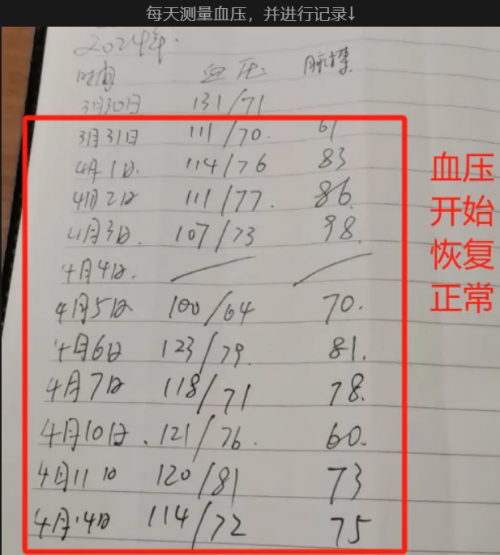 每天测量血压，并进行记录↓
2024年.
时间 血压 脉搏
3月30日 131/71
3月31日 111/70. 61
4月1日. 114/76 83
4月2日 111/77. 86.
4月3日. 107/73 98.
4月4日.
4月5日 100/64 70.
4月6日 123/79. 81.
4月7日 118/71 78.
4月10日. 121/76. 60.
4月11日 120/81 73
4月14日 114/72 75
血压
开始
恢复
正常